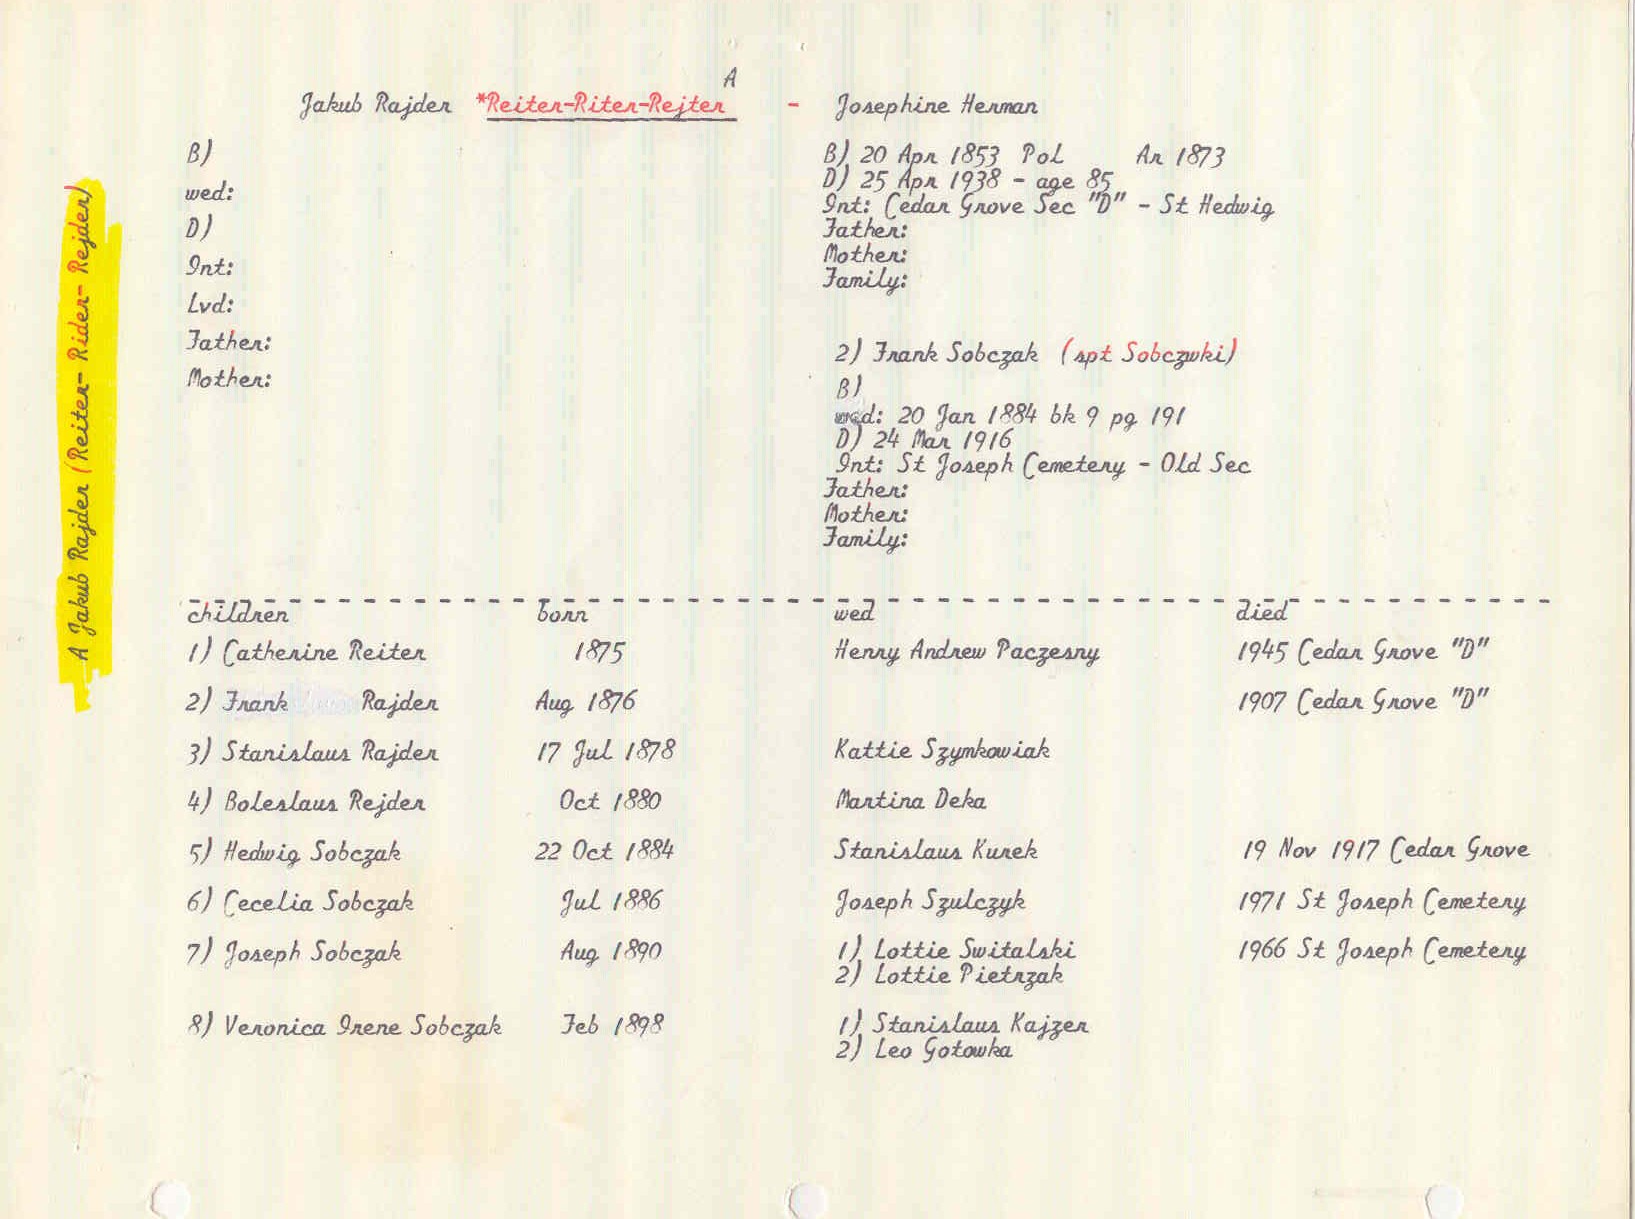 A
Jakub Rajder *Reiter-Riter-Rejter - Josephine Herman
B)
wed:
D)
Int:
Lvd:
Father:
Mother:
B) 20 Apr 1853 Pol Ar 1873
D) 25 Apr 1938 - age 85
Int: Cedar Grove Sec "D" - St Hedwig
Father:
Mother:
Family:
2) Frank Sobczak (spt Sobczwki)
B)
wed: 20 Jan 1884 bk 9 pg 191
D) 24 Mar 1916
Int: St Joseph Cemetery - Old Sec
Father:
Mother:
Family:
A Jakub Rajder (Reiter- Rider- Rejder)
children born wed died
1) Catherine Reiter 1875 Henry Andrew Paczesny 1945 Cedar Grove "D"
2) Frank Rajder Aug 1876 1907 Cedar Grove "D"
3) Stanislaus Rajder 17 Jul 1878 Kattie Szymkowiak
4) Boleslaus Rejder Oct 1880 Martina Deka
5) Hedwig Sobczak 22 Oct 1884 Stanislaus Kurek 19 Nov 1917 Cedar Grove
6) Cecelia Sobczak Jul 1886 Joseph Szulczyk 1971 St Joseph Cemetery
7) Joseph Sobczak Aug 1890 1) Lottie Switalski 1966 St Joseph Cemetery
2) Lottie Pietrzak
8) Veronica Irene Sobczak Feb 1898 1) Stanislaus Kajzer
2) Leo Gotowka